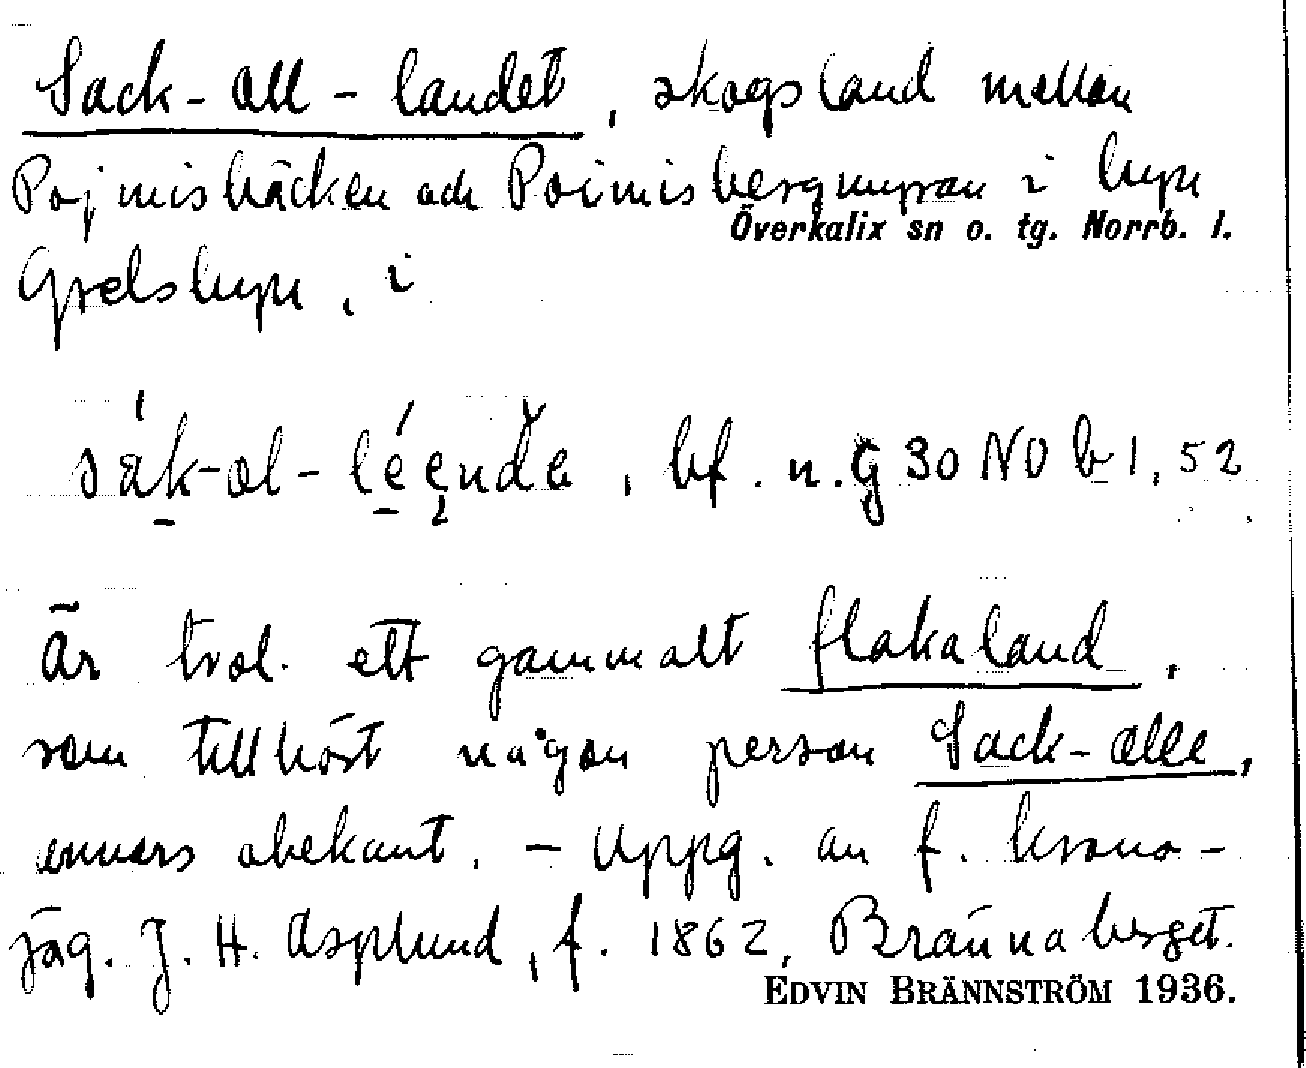 Sack-all-landet, skogsland mellan
Pojmisbäcken och Poimisbergmyran i byn
Överkalix sn o. tg. Norrb. l.
Grelsbyn, i
bf. n. G 30 NO b 1, 52
Är trol. ett gammalt flakaland,
som tillhört någon person Sack-alle,
annars obekant. – Uppg. av f. krono-
jäg. J. H. Asplund, f. 1862, Brännaberget.
EDVIN BRÄNNSTRÖM 1936.